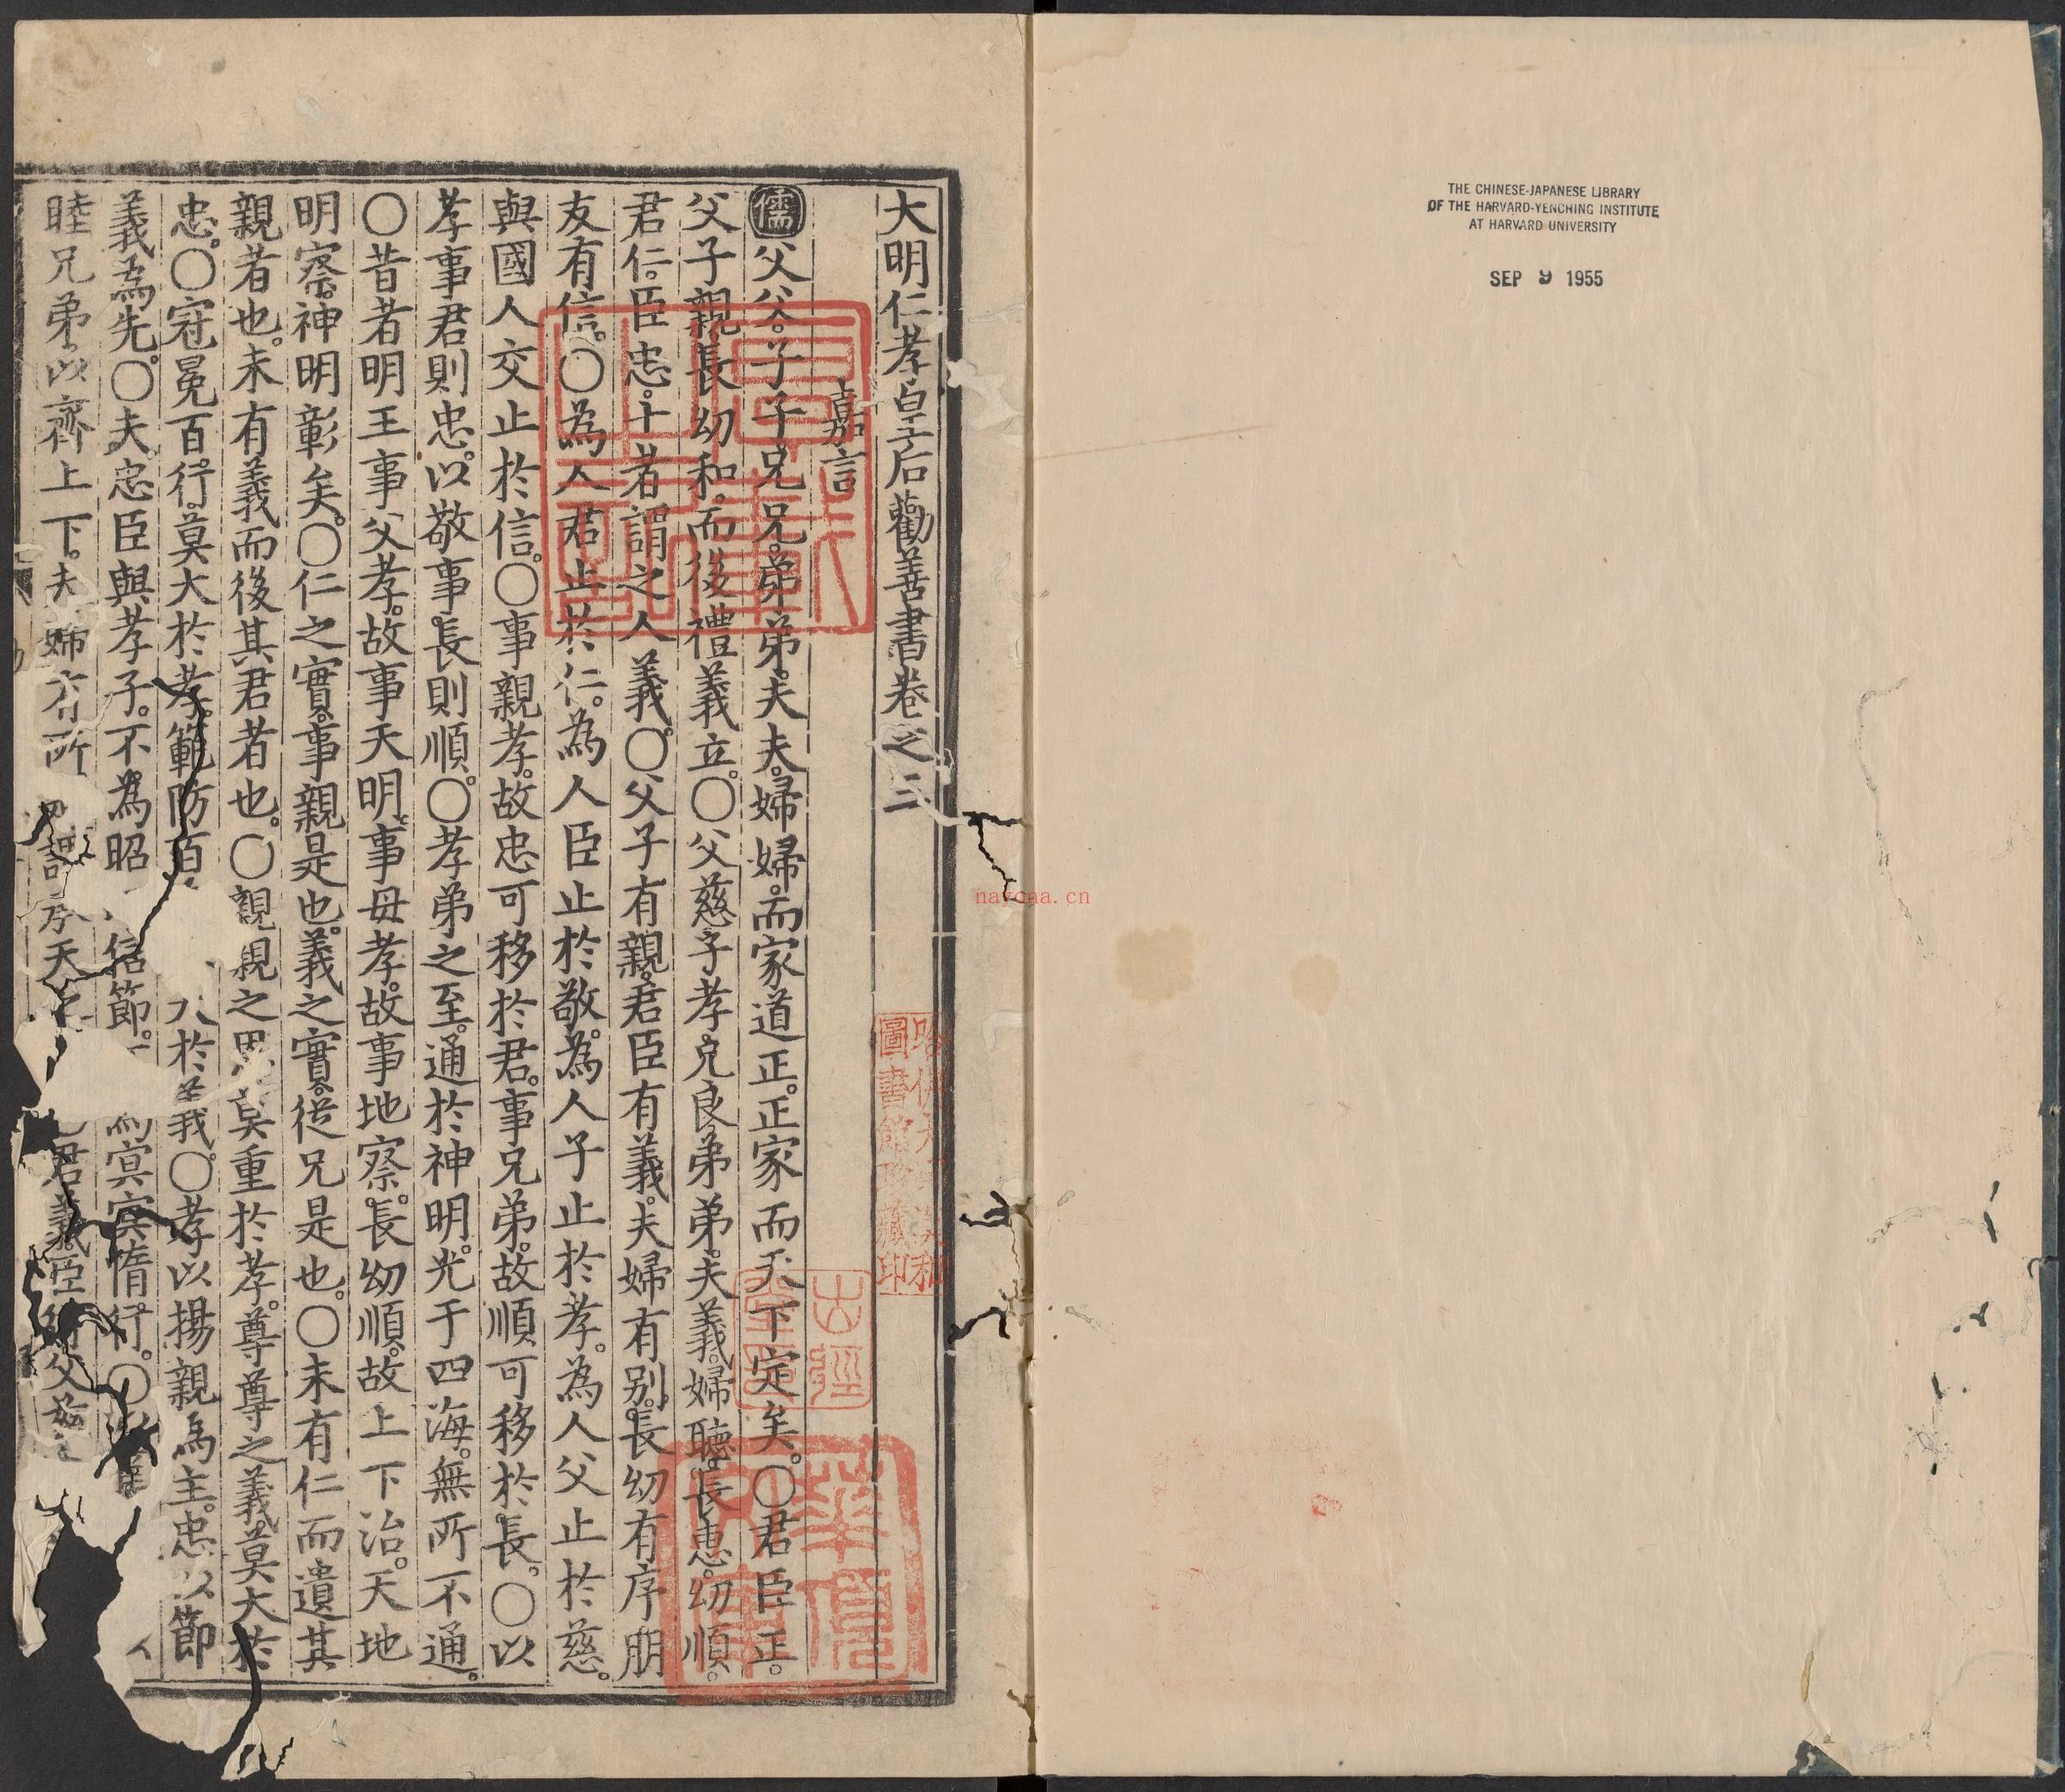 THE CHINESE-JAPANESE LIBRARY
OF THE HARVARD-YENCHING INSTITUTE
AT HARVARD UNIVERSITY
SEP 9 1955
大明仁孝皇后勸善書卷之三
嘉言
儒父父子子兄兄弟弟夫夫婦婦而家道正正家而天下定矣〇君臣正
父子親長幼和而後禮義立〇父慈子孝兄良弟弟夫義婦聽長惠幼順
君仁臣忠十者謂之人義〇父子有親君臣有義夫婦有别長幼有序朋
友有信〇為人君止於仁為人臣止於敬為人子止於孝為人父止於慈
與國人交止於信〇事親孝故忠可移於君事兄弟故順可移於長〇以
孝事君則忠以敬事長則順〇孝弟之至通於神明光于四海無所不通
〇昔者明王事父孝故事天明事母孝故事地察長幼順故上下治天地
明察神明彰矣〇仁之實事親是也義之實從兄是也〇未有仁而遺其
親者也未有義而後其君者也〇親親之恩莫重於孝尊尊之義莫大於
忠〇冠冕百行莫大於孝範防百於義〇孝以揚親為主忠以節
義為先〇夫忠臣與孝子不為昭信節冥冥惰行〇
睦兄弟以齊上下夫婦有所天君義臣父慈
哈佛大學漢和
圖書館珍藏印
nayona.cn